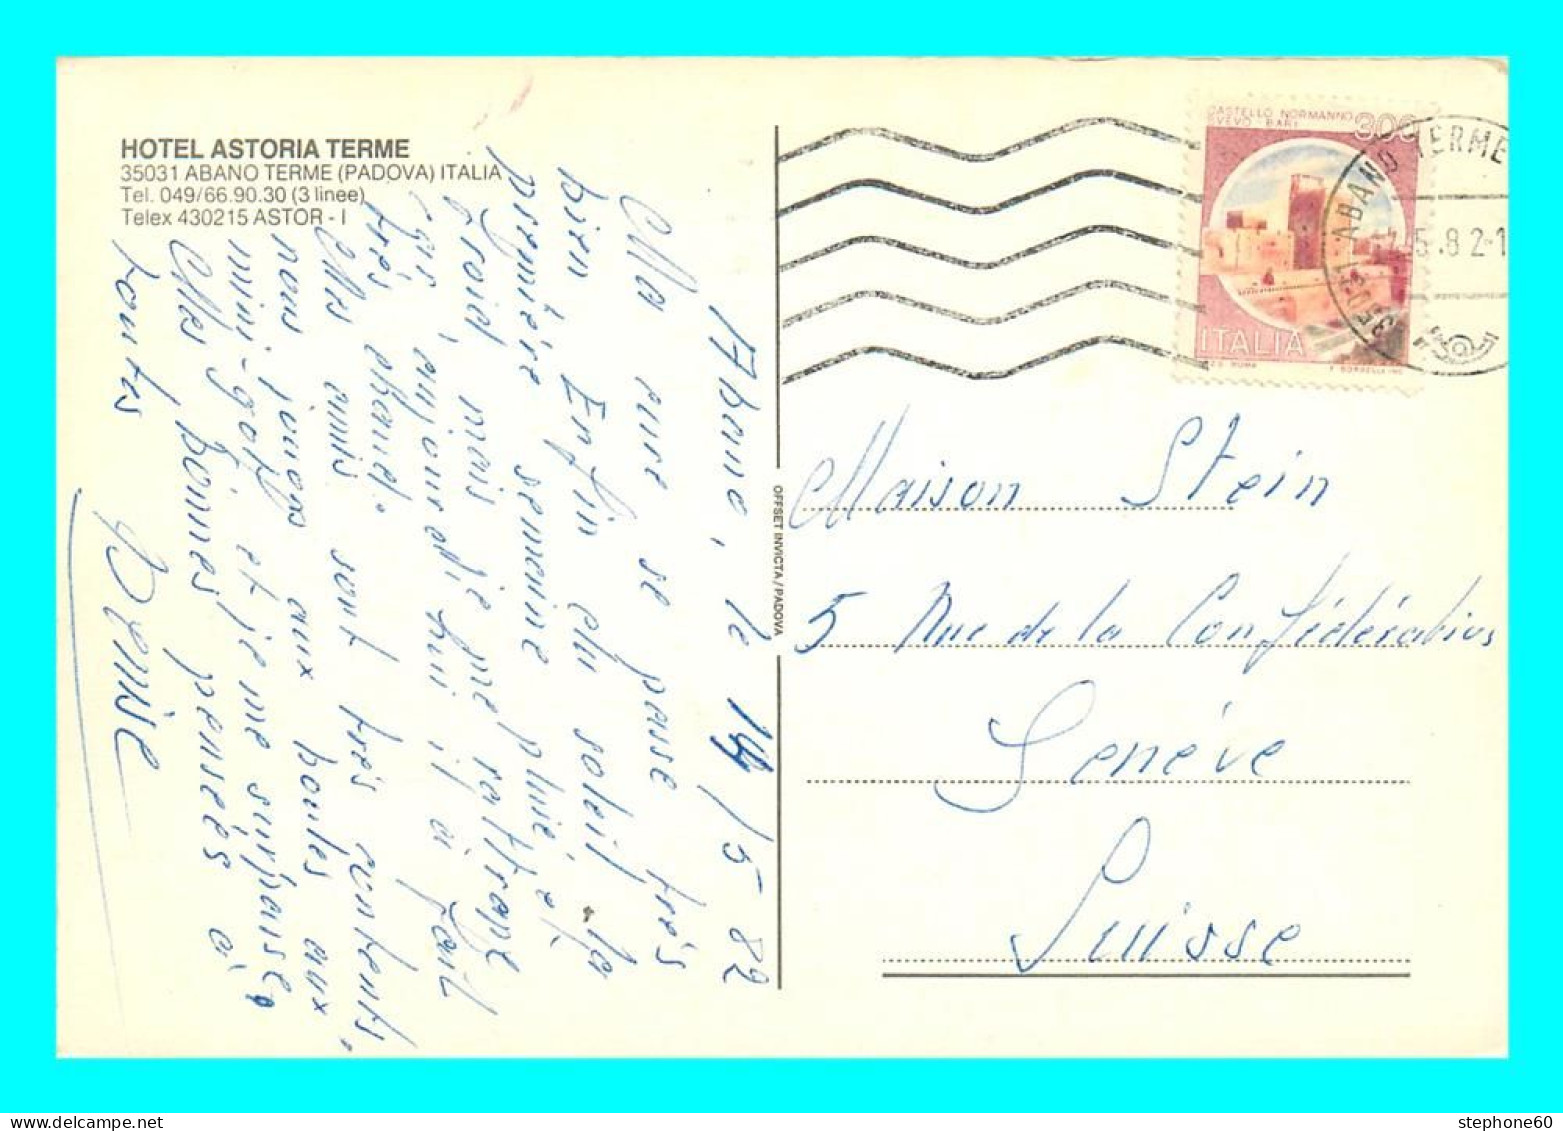 HOTEL ASTORIA TERME
35031 ABANO TERME (PADOVA) ITALIA
Tel. 049/66.90.30 (3 linee)
Telex 430215 ASTOR - I
Abano, le 14/5 82
Ma cure se passe très
bien Enfin du soleil. la
première semaine pluie, et
froid, mais je me rattrape
car, aujourd'hui il a fait
très chaud.
Mes amis sont très contents,
nous jouons aux boules aux
mini-golf et je me surpasse,
Mes bonnes pensées à
toutes
Denise
OFFSET INVICTA / PADOVA
CASTELLO NORMANNO
SVEVO BARI
300
ITALIA
35031 ABANO TERME
5.82-1
Maison Stein
5 Rue de la Confédération
Genève
Suisse
stephone60